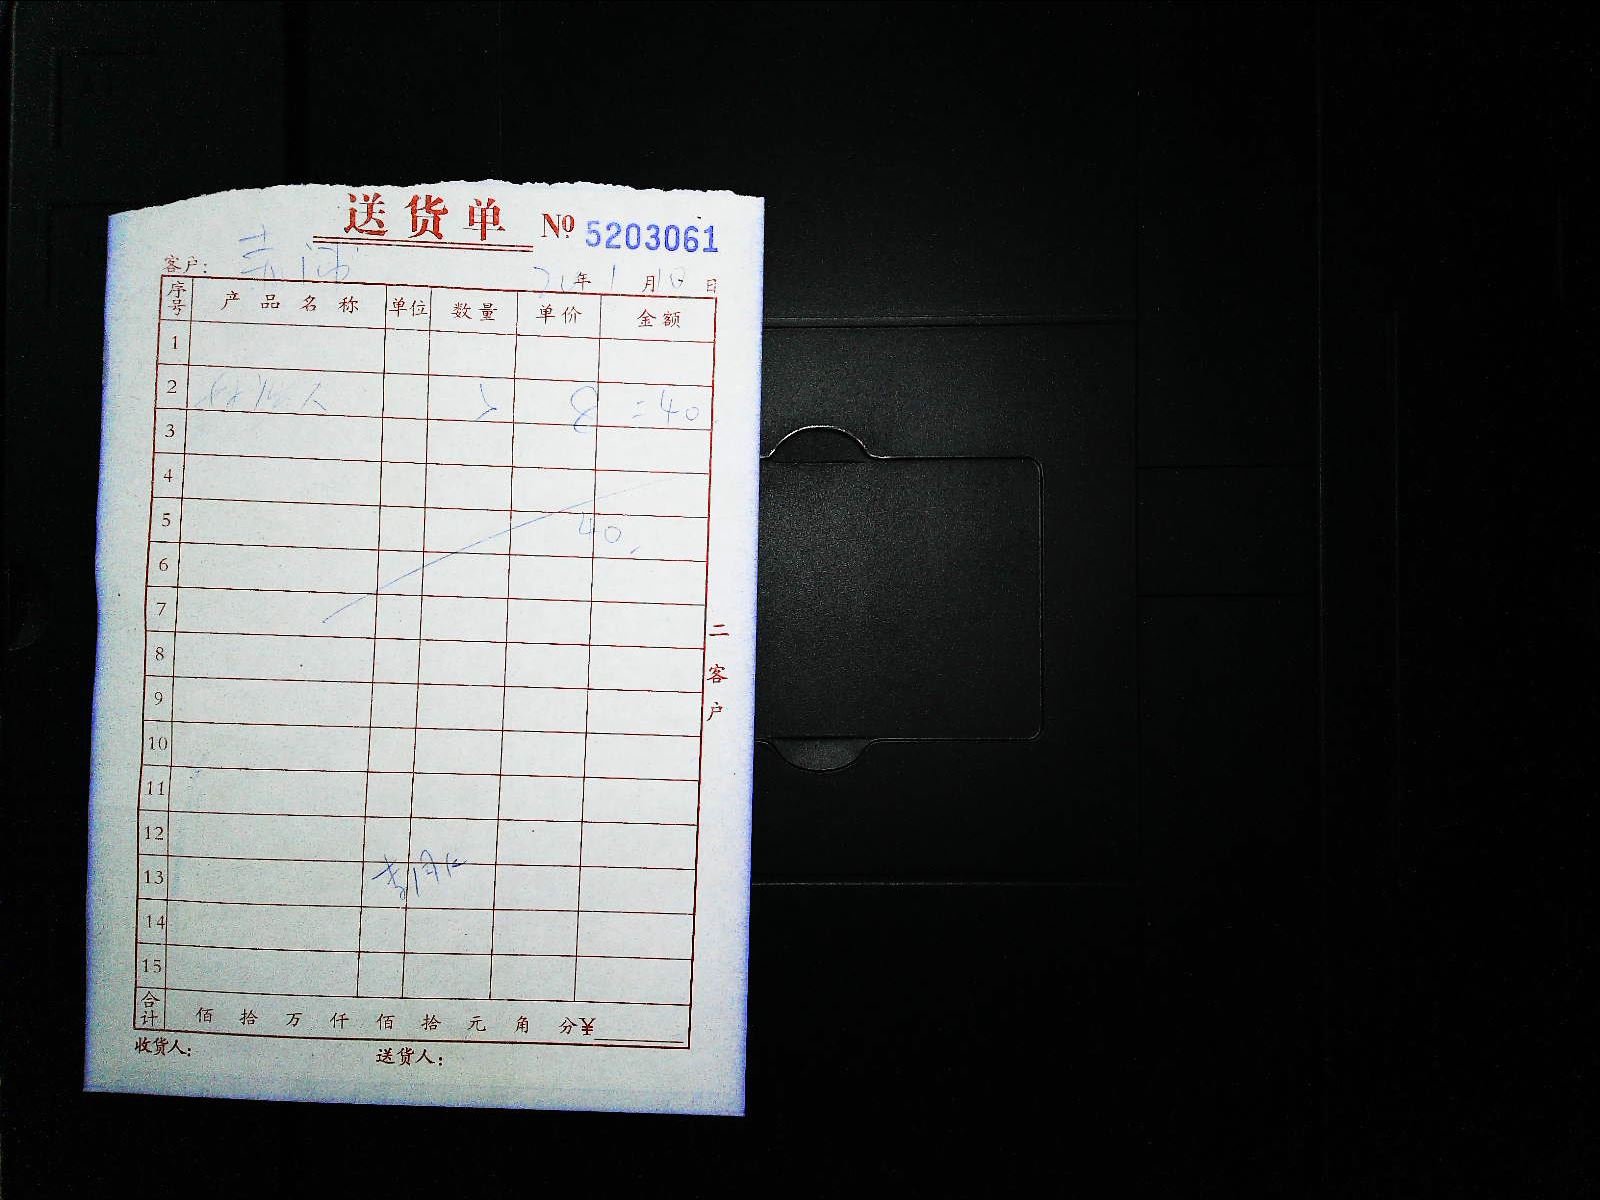 送货单 № 5203061
客户：
21年1月18日
序号 产品名称 单位 数量 单价 金额
1
2 5 8 =40
3
4
5 40
6
7
8
9
10
11
12
13
14
15
合计 佰 拾 万 仟 佰 拾 元 角 分¥
收货人： 送货人：
二 客户